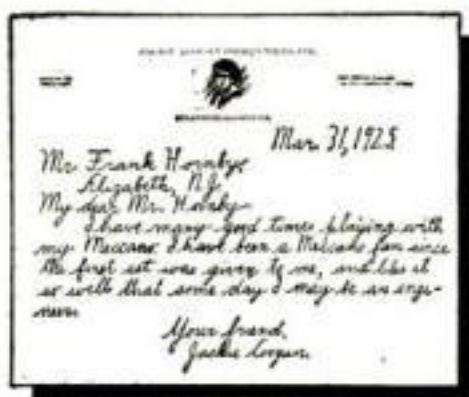 Mar. 31, 1925
Mr Frank Hornby,
Elizabeth, N.J.
My dear Mr. Hornby
I have many good times playing with
my Meccano I have been a Meccano fan since
the first set was given to me, and like it
so well that some day I may be an engi-
neer.
Your friend,
Jackie Coogan.